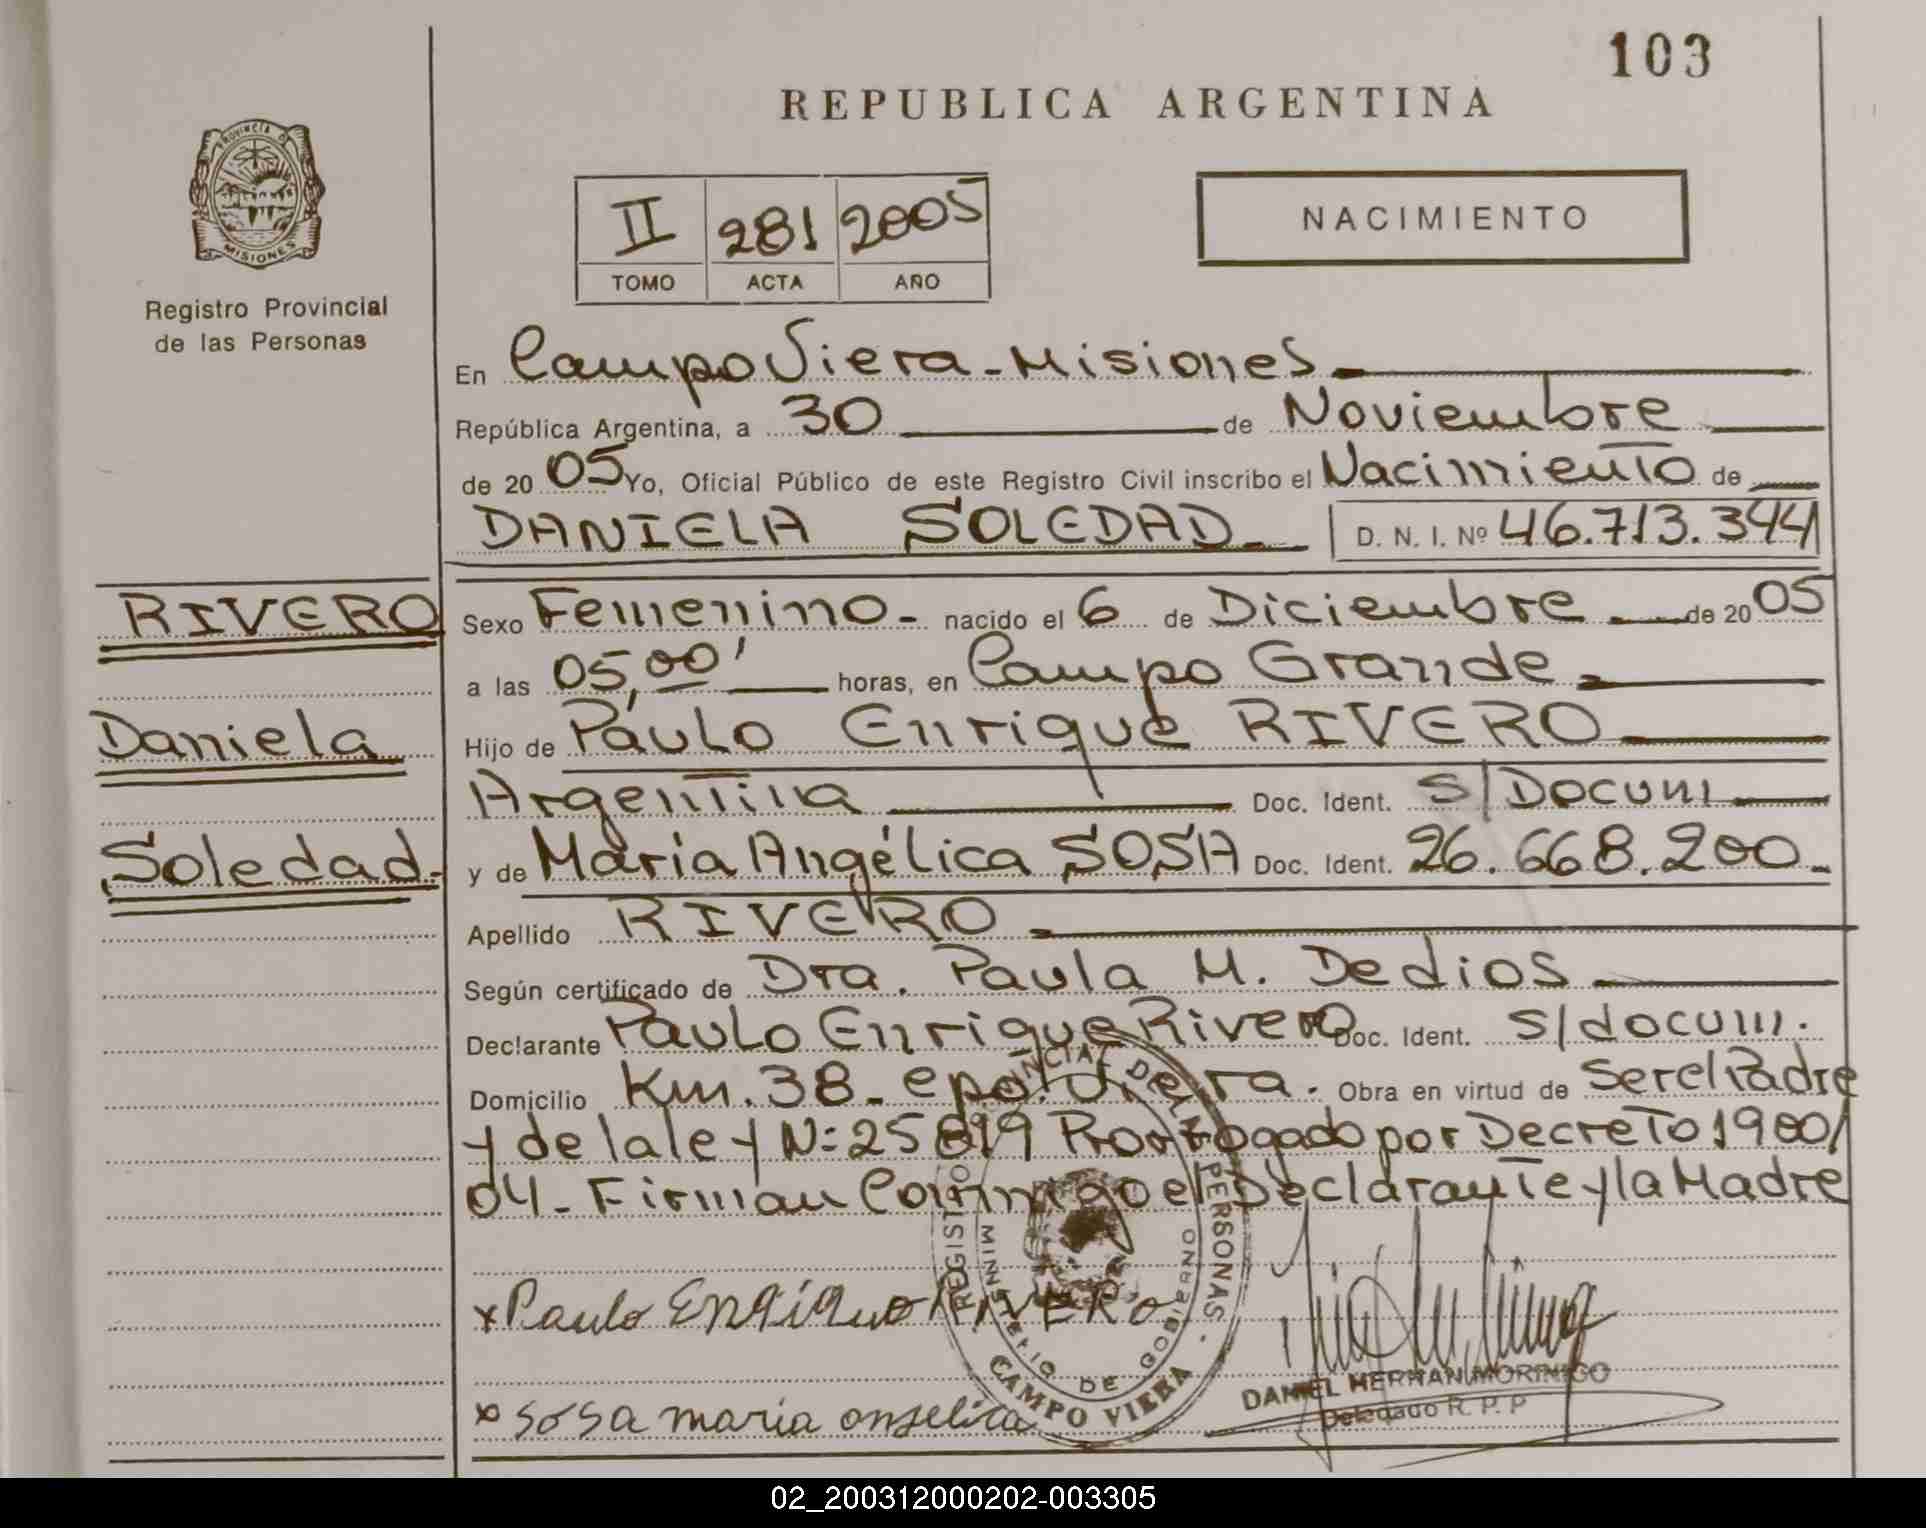 103
REPUBLICA ARGENTINA
PROVINCIA DE
MISIONES
Registro Provincial
de las Personas
II 281 2005
TOMO ACTA AÑO
NACIMIENTO
En Campo Viera - Misiones.
República Argentina, a 30 de Noviembre
de 2005 Yo, Oficial Público de este Registro Civil inscribo el Nacimiento de
DANIELA SOLEDAD D. N. I. Nº 46.713.344
RIVERO
Daniela
Soledad.
Sexo Femenino - nacido el 6 de Diciembre de 2005
a las 05,00' horas, en Campo Grande
Hijo de Paulo Enrique RIVERO
Argentina Doc. Ident. S/Docum
y de María Angélica SOSA Doc. Ident. 26.668.200.
Apellido RIVERO
Según certificado de Dra. Paula M. Dedios
Declarante Paulo Enrique Rivero Doc. Ident. S/docum.
Domicilio Km. 38 - cpo. Viera. Obra en virtud de Ser el Padre
y de la ley N: 25819 Prorrogado por Decreto 1900/
04 - Firman Conmigo el Declarante y la Madre
x Paulo Enrique RIVERO
x Sosa maria angelica
REGISTRO PROVINCIAL DE LAS PERSONAS -
MINISTERIO DE GOBIERNO
CAMPO VIERA
DANIEL HERNAN MORINIGO
Delegado R. P. P
02_200312000202-003305